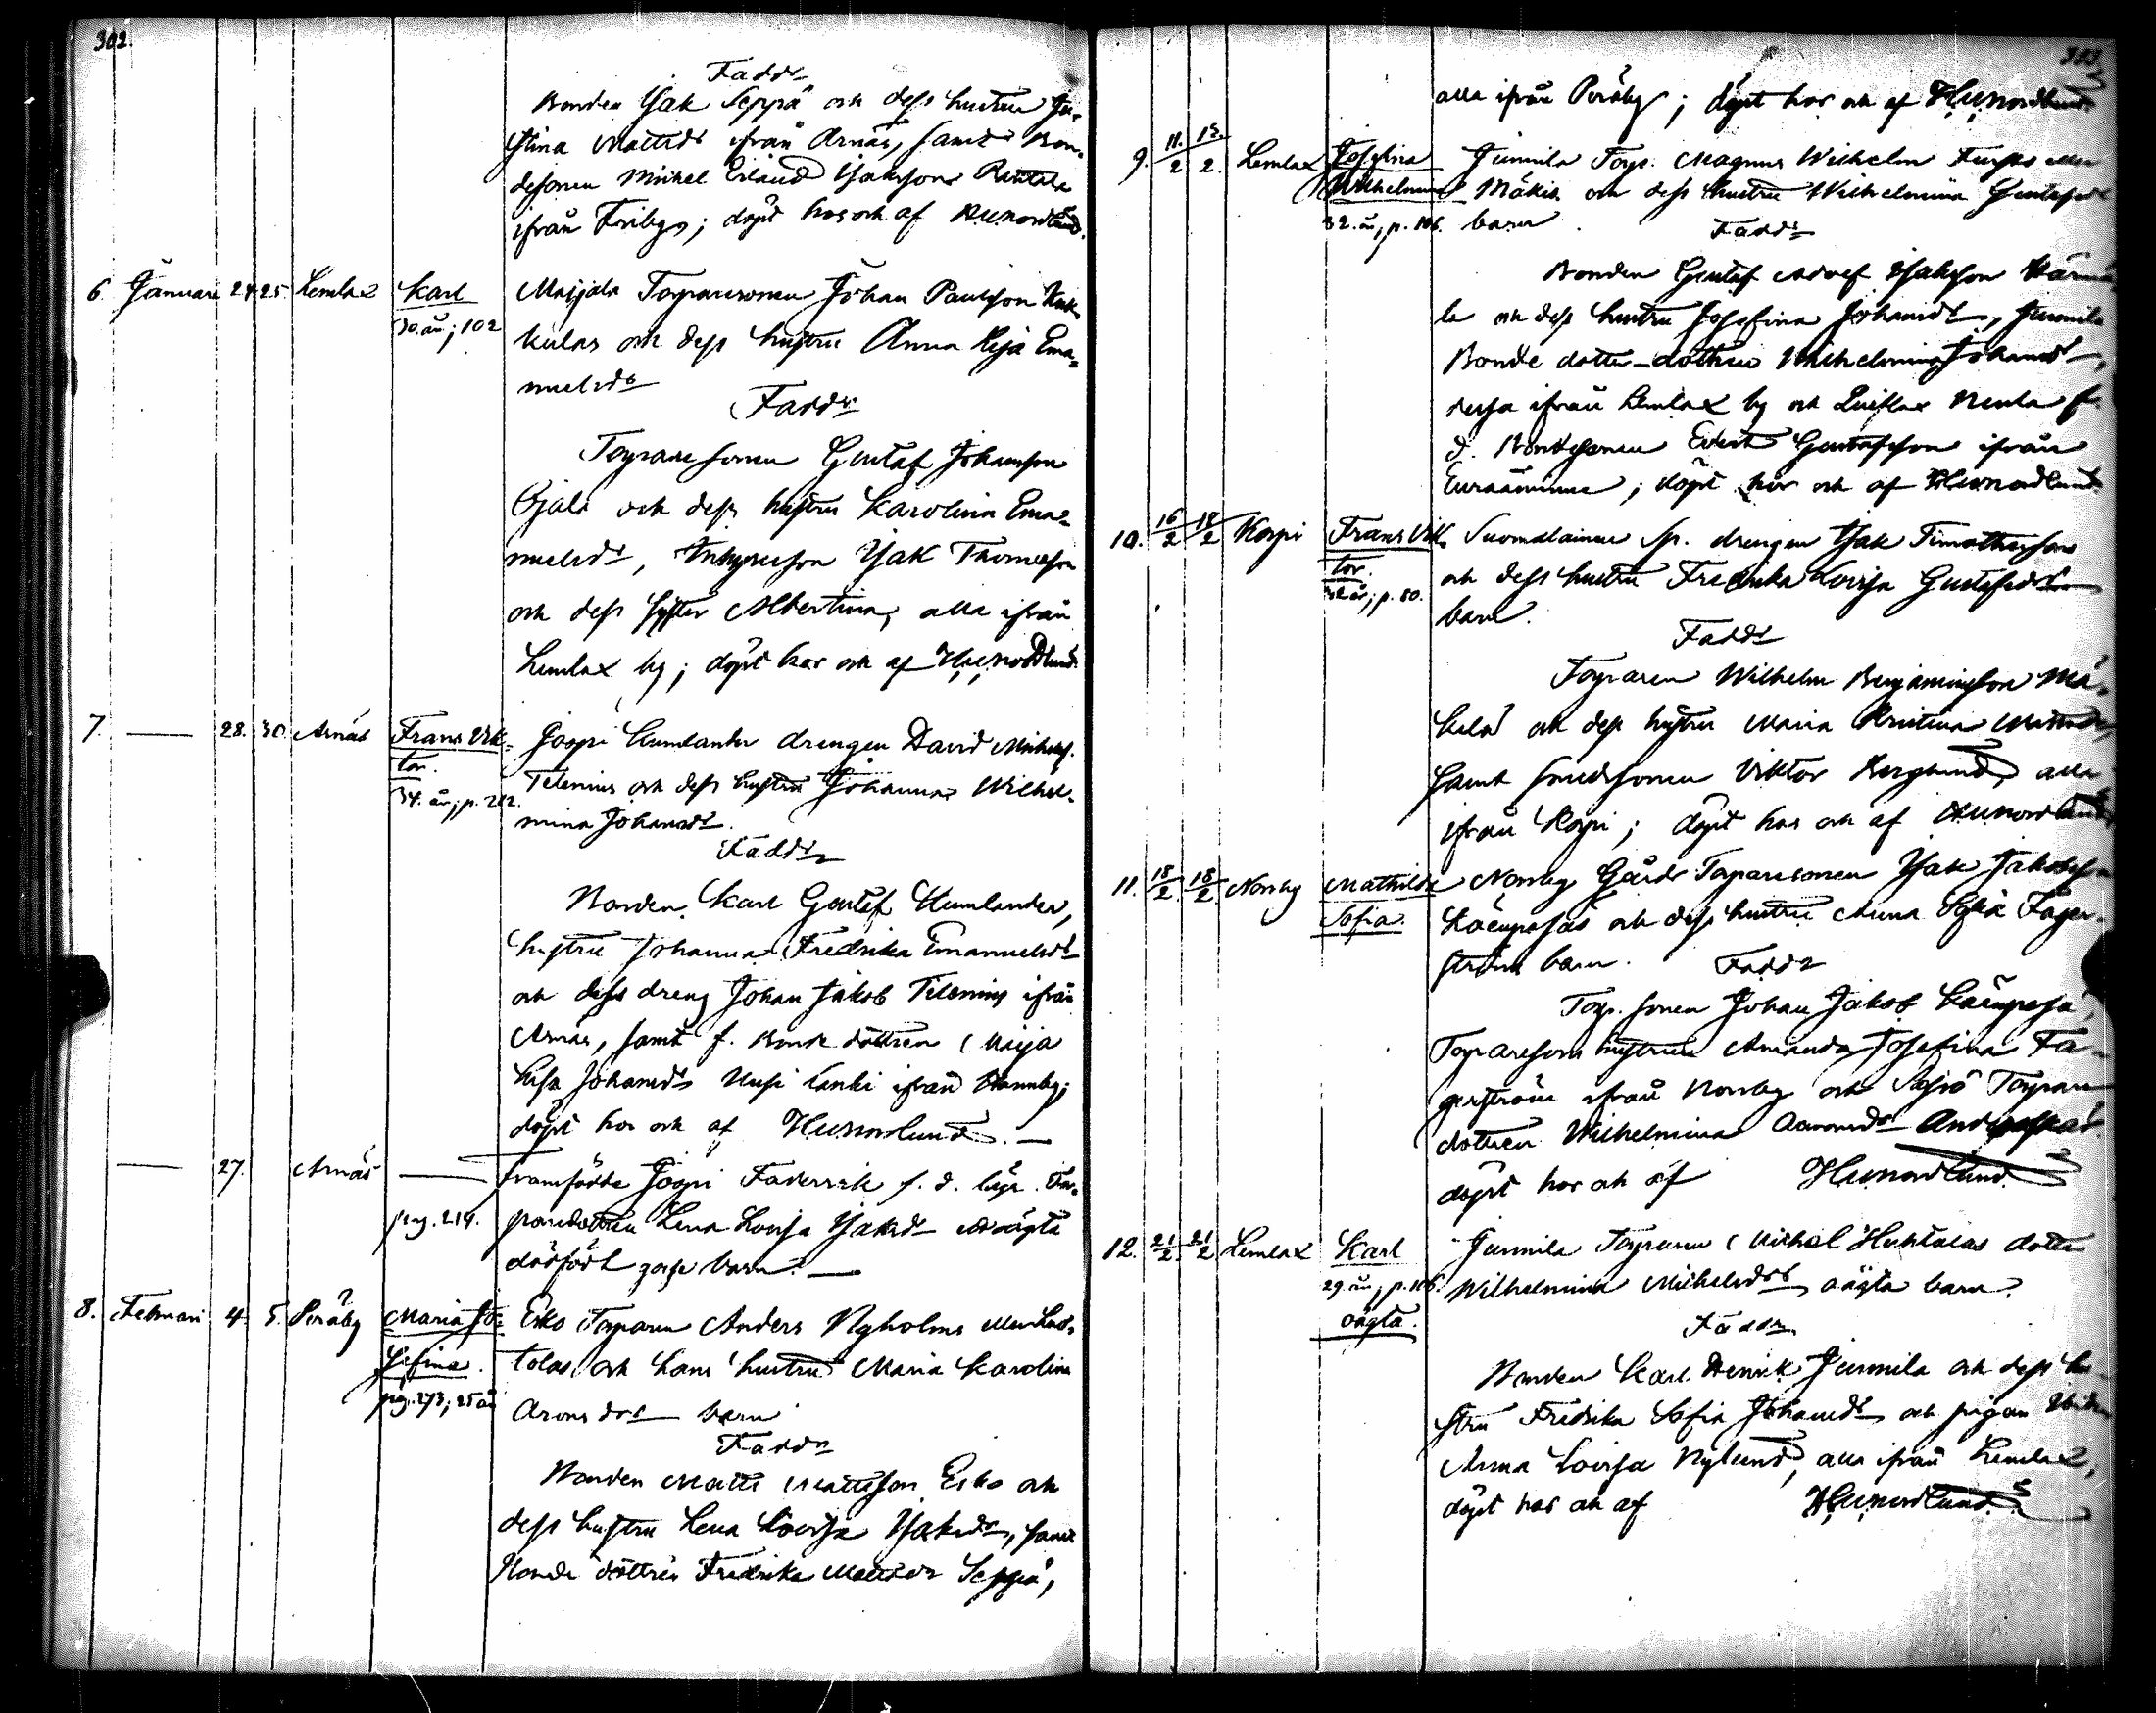 302.
Fadd.
Bonden Isak Seppä och dess hustru Ju-
stina Mattsdr ifrån Arnäs, samt Bon-
desonen Mickel Erland Isaksson Rantala
ifrån Friby; döpt hos och af H.U. Nordlund.
6. Januari 24. 25. Lemlax Karl Maijala Torparesonen Johan Paulsson Kuk-
30. år; 102 kulas och dess hustru Anna Keja Ema-
nuelsdr
Fadd.
Torparesonen Gustaf Johansson
Ojala och dess hustru Karolina Ema-
nuelsdr, Isak Thomasson
och dess syster Albertina, alla ifrån
Lemlax by; döpt hos och af H.U. Nordlund.
7. — 28. 30. Arnäs Frans Vik- Jospi Kumlander drengen David Michelss.
tor. Telenius och dess hustru Johanna Wilhel-
34. år; p. 212. mina Johansdr.
Fadd.
Bonden Karl Gustaf Kumlander,
hustru Johanna Fredrika Emanuelsdr
och dess dreng Johan Jakob Telenius ifrån
Arnäs, samt f. Bonde dottren Maija
Lisa Johansdr Uusi Lanki ifrån
döpt hos och af H.U. Nordlund. —
— 27. Arnäs — Framfödde Jospi f. d.
pag. 214. paredottren Lena Lovisa Isaksdr oägta
dödfödt gosse barn. —
8. Februari 4. 5. Peräby Maria Jo- Esko Torparen Anders Nyholms
sefina. tolas och hans hustru Maria Karolina
pag. 273; 25 år Aronsdr barn
Fadd.
Bonden Matts Mattsson Esko och
dess hustru Lena Lovisa Isaksdr, samt
Bonde dottren Fredrika Mattsdr Seppä,
303
alla ifrån Peräby; döpt hos och af H.U. Nordlund.
9. 11./2 13./2. Lemlax Josefina Junnila Torp. Magnus Wilhelm
Wilhelmina Mäkis och dess hustru Wilhelmina Gustafsdr
32. år; p. 106. barn.
Fadd.
Bonden Gustaf Adolf Isaksson
la och dess hustru Josefina Johansdr, Junnila
Bonde dotter-dottren Wilhelmina Johansdr,
dessa ifrån Lemlax by och f.
d. Bondesonen Evert Gustafsson ifrån
Euraåminne; döpt hos och af H.U. Nordlund.
10. 16/2 18/2 Korpi Frans Vik- Suomalainen Sp. drengen Isak Timotheusson
tor. och dess hustru Fredrika Lovisa Gustafsdr
år; p. 80. barn.
Fadd.
Torparen Wilhelm Benjaminsson Mä-
kelä och dess hustru Maria Kristina Mattsdr,
samt smedsonen Viktor Berglund, alla
ifrån Korpi; döpt hos och af H.U. Nordlund
11. 18/2. 18/2 Norrby Mathilda Norrby Gårds Torparesonen Isak Jakobsson
Sofia. Käenpesäs och dess hustru Anna Sofia Fager-
ströms barn. Fadd.
Torp. sonen Johan Jakob Käenpesä,
Torparesons hustrun Amanda Josefina Fa-
gerström ifrån Norrby och Torpare
dottren Wilhelmina Aronsdr
döpt hos och af H.U. Nordlund.
12. 21/2. 21/2 Lemlax Karl Junnila Torparen Mickel Huhtalas dotter
29. år; p. 106. Wilhelmina Mickelsdrs oägta barn.
oägta.
Fadd.
Bonden Karl Henrik Junnila och dess hu-
stru Fredrika Sofia Johansdr och pigan
Anna Lovisa Nylund, alla ifrån Lemlax,
döpt hos och af H.U. Nordlund.